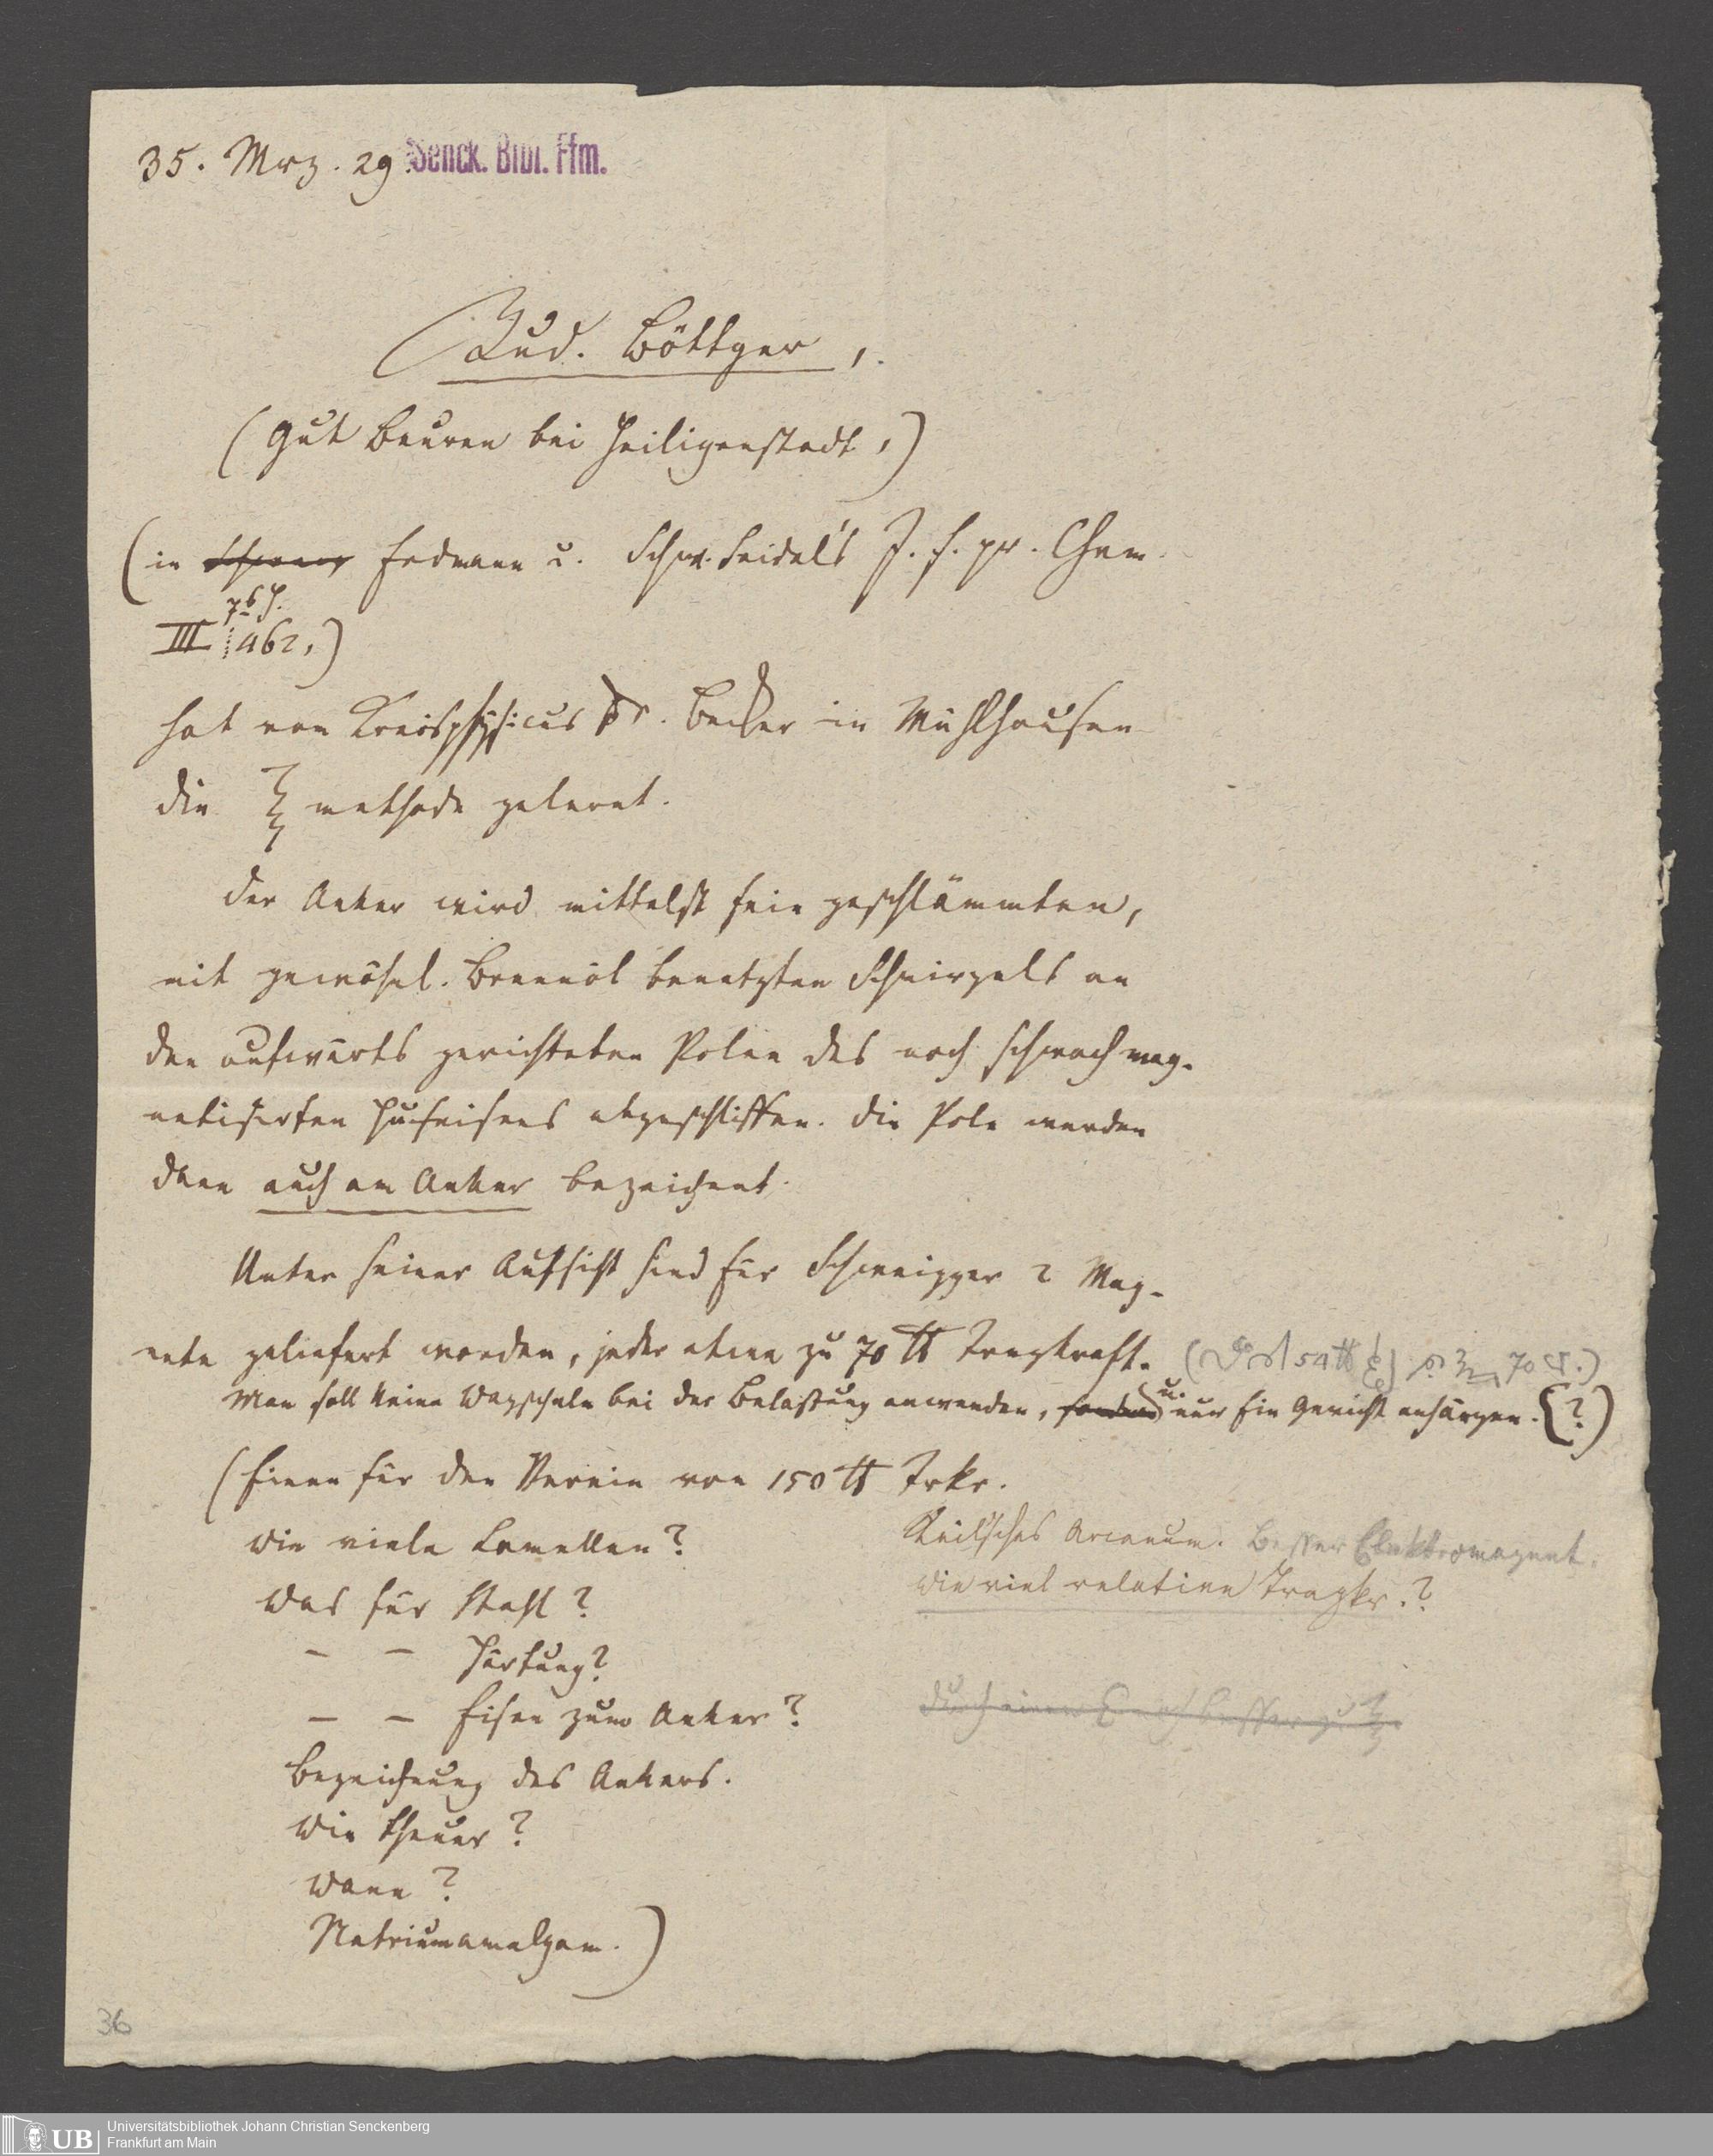 35. Mrz. 29. Senck. Bibl. Ffm.
Rud. Böttger,
(Gut Beuren bei Heiligenstadt,)
(in Erdmann u. Schw. Seidel's J. f. pr. Chem.
7s H.
III 462,)
hat von Kreisphysicus Dr. Becker in Mühlhausen
die methode gelernt.
Der Anker wird mittelst fein geschlämmten,
mit gewöhl. Brennöl benetzten Schmirgels an
den aufwärts gerichteten Polen des noch schwach mag-
netisirten Hufeisens abgeschliffen. Die Pole werden
dann auch am Anker bezeichnet.
Unter seiner Aufsicht sind für Schweigger 2 Mag-
nete geliefert worden, jeder etwa zu 70 ℔ Tragkraft. 54 ℔ 70
Man soll keine Wagschale bei der Belastung anwenden, sondern u. nur Ein Gewicht anhängen. (?)
(Einen für den Verein von 150 ℔ Trkr.
Wie viele Lamellen?
Keil'sches Arcanum. Besser Elektromagnet.
Was für Stahl?
Wie viel relative Tragkr.?
— — Härtung?
— — Eisen zum Anker?
durch einen besser zu
Bezeichnung des Ankers.
Wie theuer?
Wann?
Natriumamalgam.)
36
UB Universitätsbibliothek Johann Christian Senckenberg
Frankfurt am Main